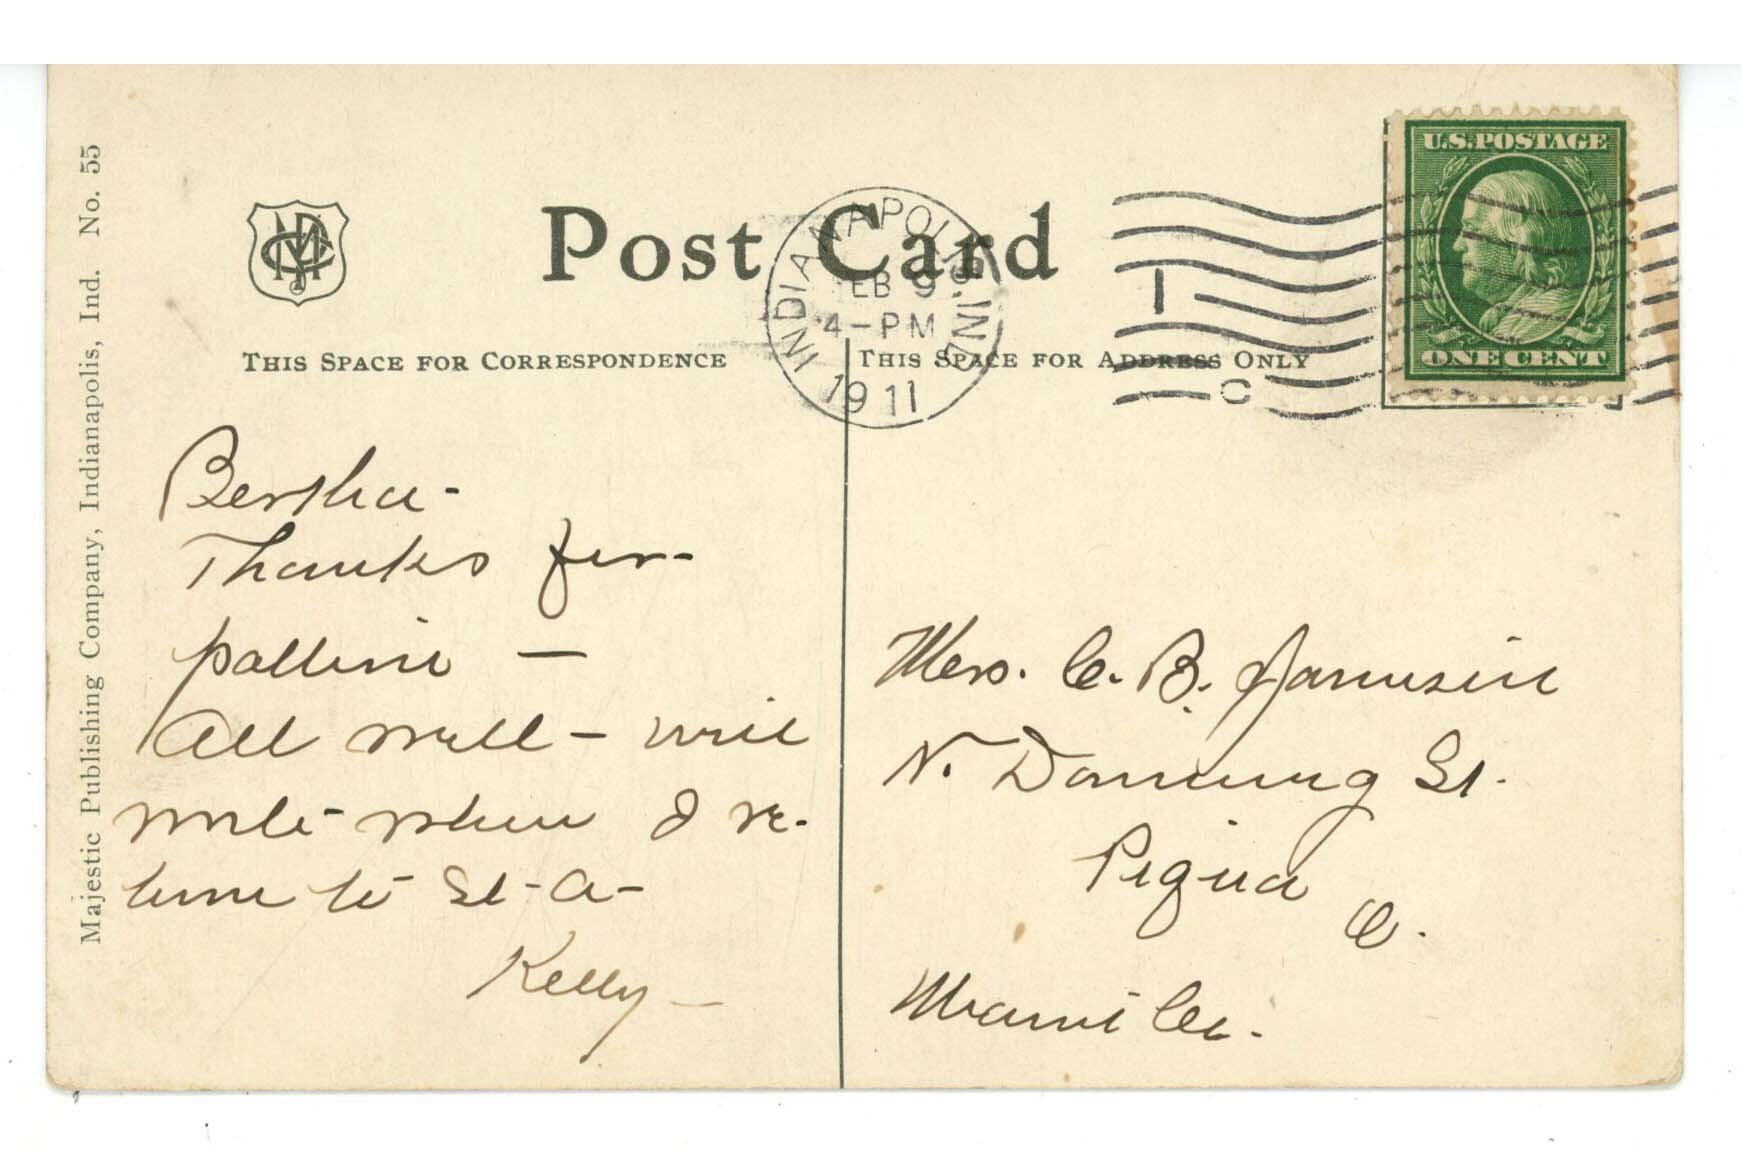 Majestic Publishing Company, Indianapolis, Ind. No. 55
Post Card
INDIANAPOLIS, IND.
FEB 9
4-PM
1911
1
C
U.S.POSTAGE
ONE CENT
THIS SPACE FOR CORRESPONDENCE
THIS SPACE FOR ADDRESS ONLY
Bertha-
Thanks for-
All well - will
write when I re-
turn to St-A-
Kelly-
Mrs. C. B. Jamison
N. Downing St.
Piqua
O.
Miami Co.